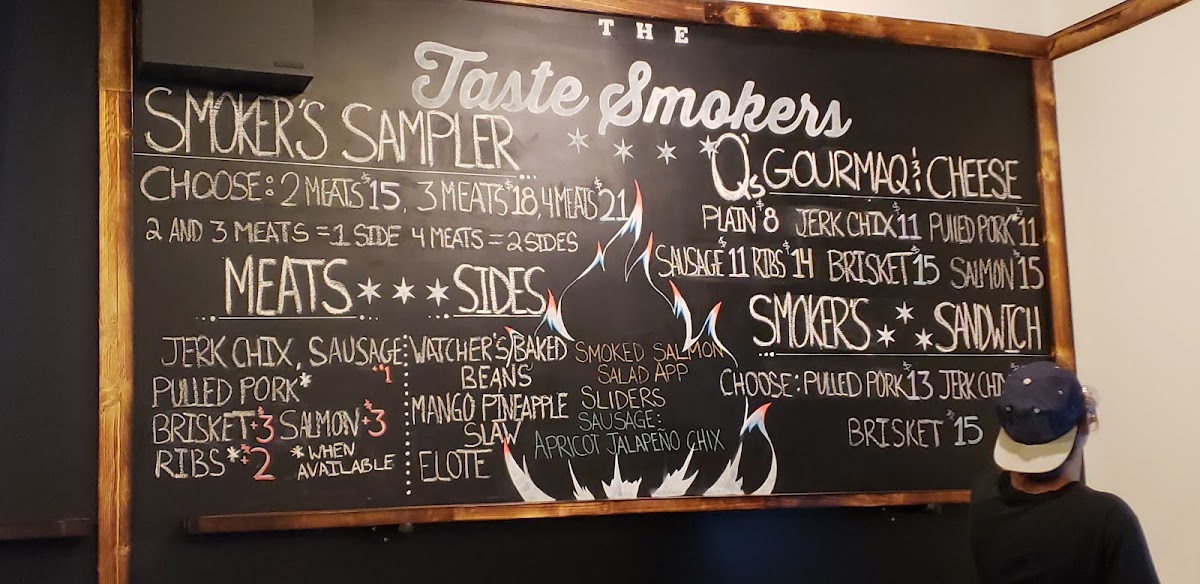 THE
Taste Smokers
SMOKER'S SAMPLER
CHOOSE: 2 MEATS $15, 3 MEATS $18, 4 MEATS $21
2 AND 3 MEATS = 1 SIDE 4 MEATS = 2 SIDES
MEATS
JERK CHIX, SAUSAGE +$1
PULLED PORK*
BRISKET +$3 SALMON +$3
RIBS* +$2 *WHEN AVAILABLE
SIDES
WATCHER'S/BAKED
BEANS
MANGO PINEAPPLE
SLAW
ELOTE
SMOKED SALMON
SALAD APP
SLIDERS
SAUSAGE:
APRICOT JALAPEÑO CHIX
Q's GOURMAQ & CHEESE
PLAIN $8 JERK CHIX $11 PULLED PORK* $11
SAUSAGE $11 RIBS $14 BRISKET $15 SALMON $15
SMOKER'S SANDWICH
CHOOSE: PULLED PORK $13 JERK
BRISKET $15